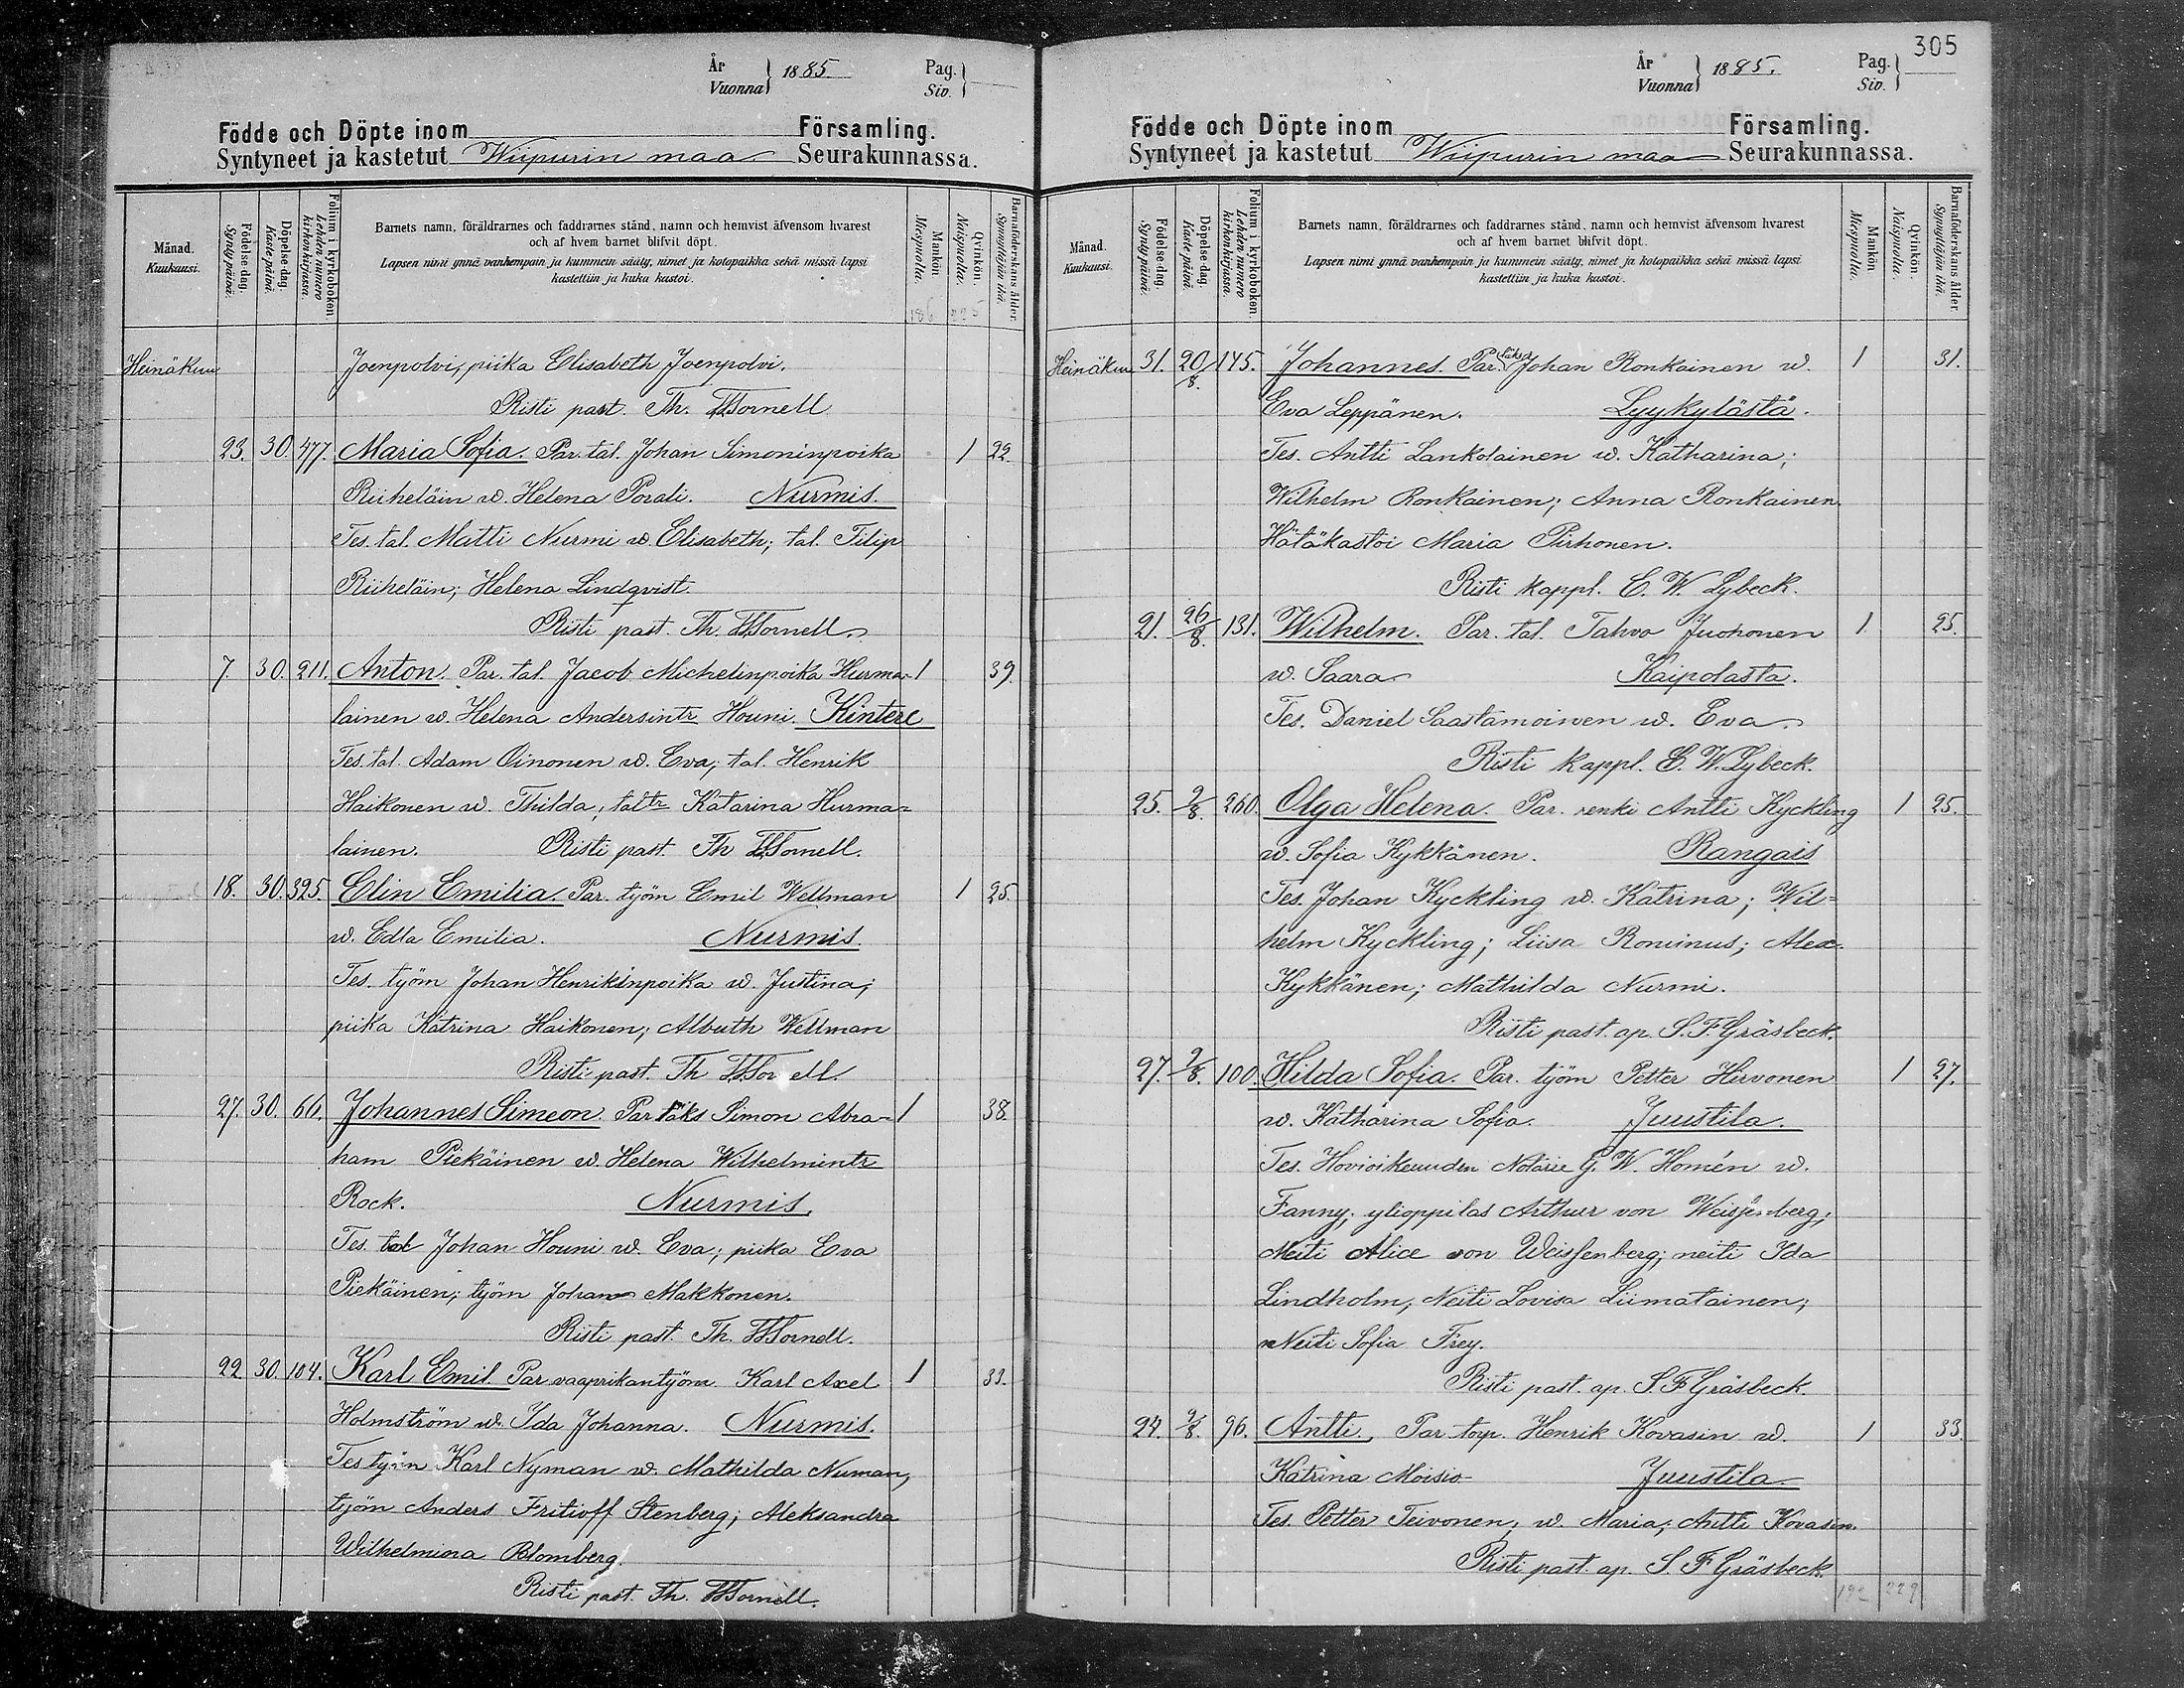 År
Vuonna } 1885. Pag.
Siv. }
Födde och Döpte inom Församling.
Syntyneet ja kastetut Wiipurin maa Seurakunnassa.
Månad.
Kuukausi.
Födelse-dag.
Synty päivä.
Döpelse-dag.
Kaste päivä.
Folium i kyrkoboken.
Lehden numero kirkonkirjassa.
Barnets namn, föräldrarnes och faddrarnes stånd, namn och hemvist äfvensom hvarest
och af hvem barnet blifvit döpt.
Lapsen nimi ynnä vanhempain ja kummein sääty, nimet ja kotopaikka sekä missä lapsi
kastettiin ja kuka kastoi.
Mankön.
Miespuolta.
Qvinkön.
Naispuolta.
Barnaföderskans ålder.
Synnyttäjän ikä.
186 225
Heinäkuu Joenpolvi, piika Elisabeth Joenpolvi.
Risti past. Th. Tornell
23. 30. 477. Maria Sofia. Par. tal. Johan Simoninpoika 1 22.
Riiheläin w. Helena Porali. Nurmis.
Tes. tal. Matti Nurmi w. Elisabeth; tal. Filip
Riiheläin; Helena Lindqvist.
Risti past. Th. Tornell.
7. 30. 211. Anton. Par. tal. Jacob Michelinpoika Hurma- 1 39.
lainen w. Helena Andersintr Houni. Kintere
Tes. tal. Adam Oinonen w. Eva; tal. Henrik
Haikonen w. Thilda; taltr Katarina Hurma=
lainen. Risti past. Th Tornell.
18. 30. 325. Elin Emilia. Par. työm Emil Wellman 1 25.
w. Edla Emilia. Nurmis.
Tes. työm Johan Henrikinpoika w. Justina;
piika Katrina Haikonen; Wellman
Risti past. Th Tornell.
27. 30. 66. Johannes Simeon. Par läks Simon Abra- 1 38.
ham Piekäinen w. Helena Wilhelmintr
Rock. Nurmis.
Tes. tal Johan Houni w. Eva; piika Eva
Piekäinen; työm Johan Makkonen.
Risti past. Th. Tornell.
22 30. 104. Karl Emil. Par vaaprikantyöm Karl Axel 1 33.
Holmström w. Ida Johanna. Nurmis.
Tes työm Karl Nyman w. Mathilda Numan,
työm Anders Fritioff Stenberg; Aleksandra
Wilhelmina Blomberg.
Risti past. Th. Tornell.
305
År
Vuonna } 1885. Pag.
Siv. }
Födde och Döpte inom Församling.
Syntyneet ja kastetut Wiipurin maa Seurakunnassa.
Månad.
Kuukausi.
Födelse-dag.
Synty päivä.
Döpelse-dag.
Kaste päivä.
Folium i kyrkoboken.
Lehden numero kirkonkirjassa.
Barnets namn, föräldrarnes och faddrarnes stånd, namn och hemvist äfvensom hvarest
och af hvem barnet blifvit döpt.
Lapsen nimi ynnä vanhempain ja kummein sääty, nimet ja kotopaikka sekä missä lapsi
kastettiin ja kuka kastoi.
Mankön
Miespuolta.
Qvinkön.
Naispuolta.
Barnaföderskans ålder.
Synnyttäjän ikä.
Heinäkuu 31. 20/8. 145. Johannes. Par. läks Johan Ronkainen w. 1 31.
Eva Leppänen. Lyykylästä.
Tes. Antti Lankolainen w. Katharina;
Wilhelm Ronkainen; Anna Ronkainen.
Hätäkastoi Maria Pirhonen.
Risti kappl. E. W. Lybeck.
21. 26/8. 131. Wilhelm. Par. tal. Tahvo Juohonen 1. 25.
w. Saara Kaipolasta.
Tes. Daniel Saastamoinen w. Eva
Risti kappl. E. W. Lybeck.
25. 2/8. 260. Olga Helena. Par. renki Antti Kyckling 1 25.
w. Sofia Kykkänen. Rangais
Tes. Johan Kyckling w. Katrina; Wil=
helm Kyckling; Liisa Rominus; Alex.
Kykkänen; Mathilda Nurmi.
Risti past. ap. S. F. Gräsbeck.
27. 2/8. 100. Hilda Sofia. Par. työm Petter Hirvonen 1 27.
w. Katharina Sofia. Juustila.
Tes. Hovioikeuden Notarie G. W. Homén w.
Fanny; ylioppilas Arthur von Weissenberg;
Neiti Alice von Weissenberg; neiti Ida
Lindholm; Neiti Lovisa Liimatainen;
Neiti Sofia Frey.
Risti past. ap. S. F Gräsbeck.
24. 2/8. 96. Antti. Par torp. Henrik Kovasin w. 1 33.
Katrina Moisio Juustila.
Tes. Petter Teivonen; w. Maria; Antti Kovasin.
Risti past. ap. S. F Gräsbeck.
192 229